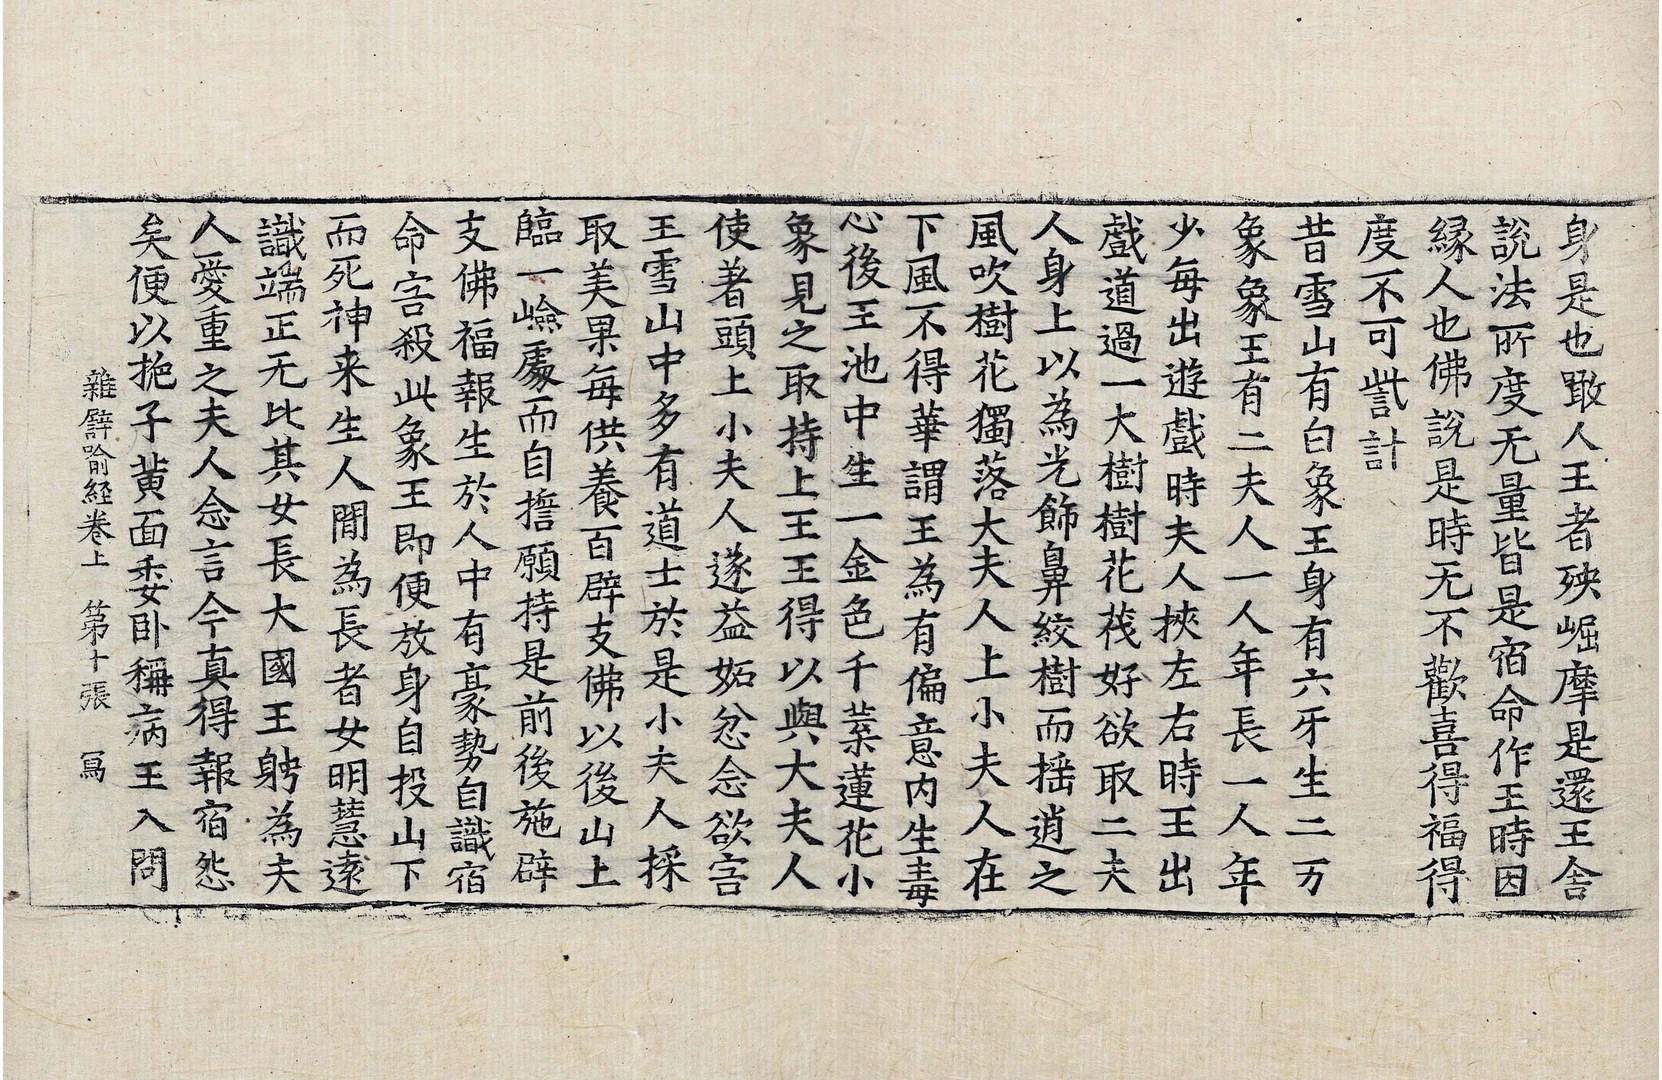 身是也噉人王者殃崛摩是還王舍
說法所度无量皆是宿命作王時因
緣人也佛說是時无不歡喜得福得
度不可訾計
昔雪山有白象王身有六牙生二万
象象王有二夫人一人年長一人年
少每出遊戲時夫人挾左右時王出
戲道過一大樹樹花茂好欲取二夫
人身上以為光飾鼻絞樹而搖逍之
風吹樹花獨落大夫人上小夫人在
下風不得華謂王為有偏意內生毒
心後王池中生一金色千葉蓮花小
象見之取持上王王得以與大夫人
使著頭上小夫人遂益妬忿念欲害
王雪山中多有道士於是小夫人採
取美果每供養百辟支佛以後山上
臨一嶮處而自擔願持是前後施辟
支佛福報生於人中有豪勢自識宿
命害殺此象王即便放身自投山下
而死神来生人間為長者女明慧遠
識端正无比其女長大國王娉為夫
人愛重之夫人念言今真得報宿怨
矣便以梔子黃面委卧稱病王入問
雜譬喻経卷上　第十張　寫